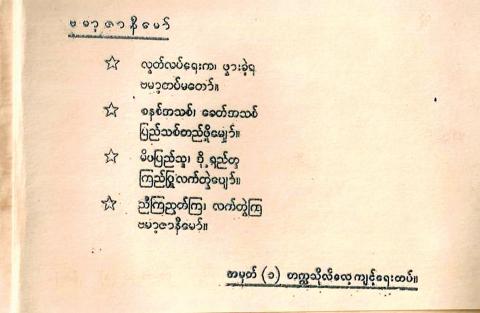 ဗမာ့ဇာနီမော်
လွတ်လပ်ရေးက၊ ဖွားခဲ့ရ
ဗမာ့တပ်မတော်။
စနစ်အသစ်၊ ခေတ်အသစ်
ပြည်သစ်တည်ဖို့မျှော်။
မိဘပြည်သူ၊ ဒို့ရည်တူ
ကြည်ဖြူလက်တွဲပျော်။
ညီကြညွတ်ကြ၊ လက်တွဲကြ
ဗမာ့ဇာနီမော်။
အမှတ် (၁) တက္ကသိုလ်လေ့ကျင့်ရေးတပ်။